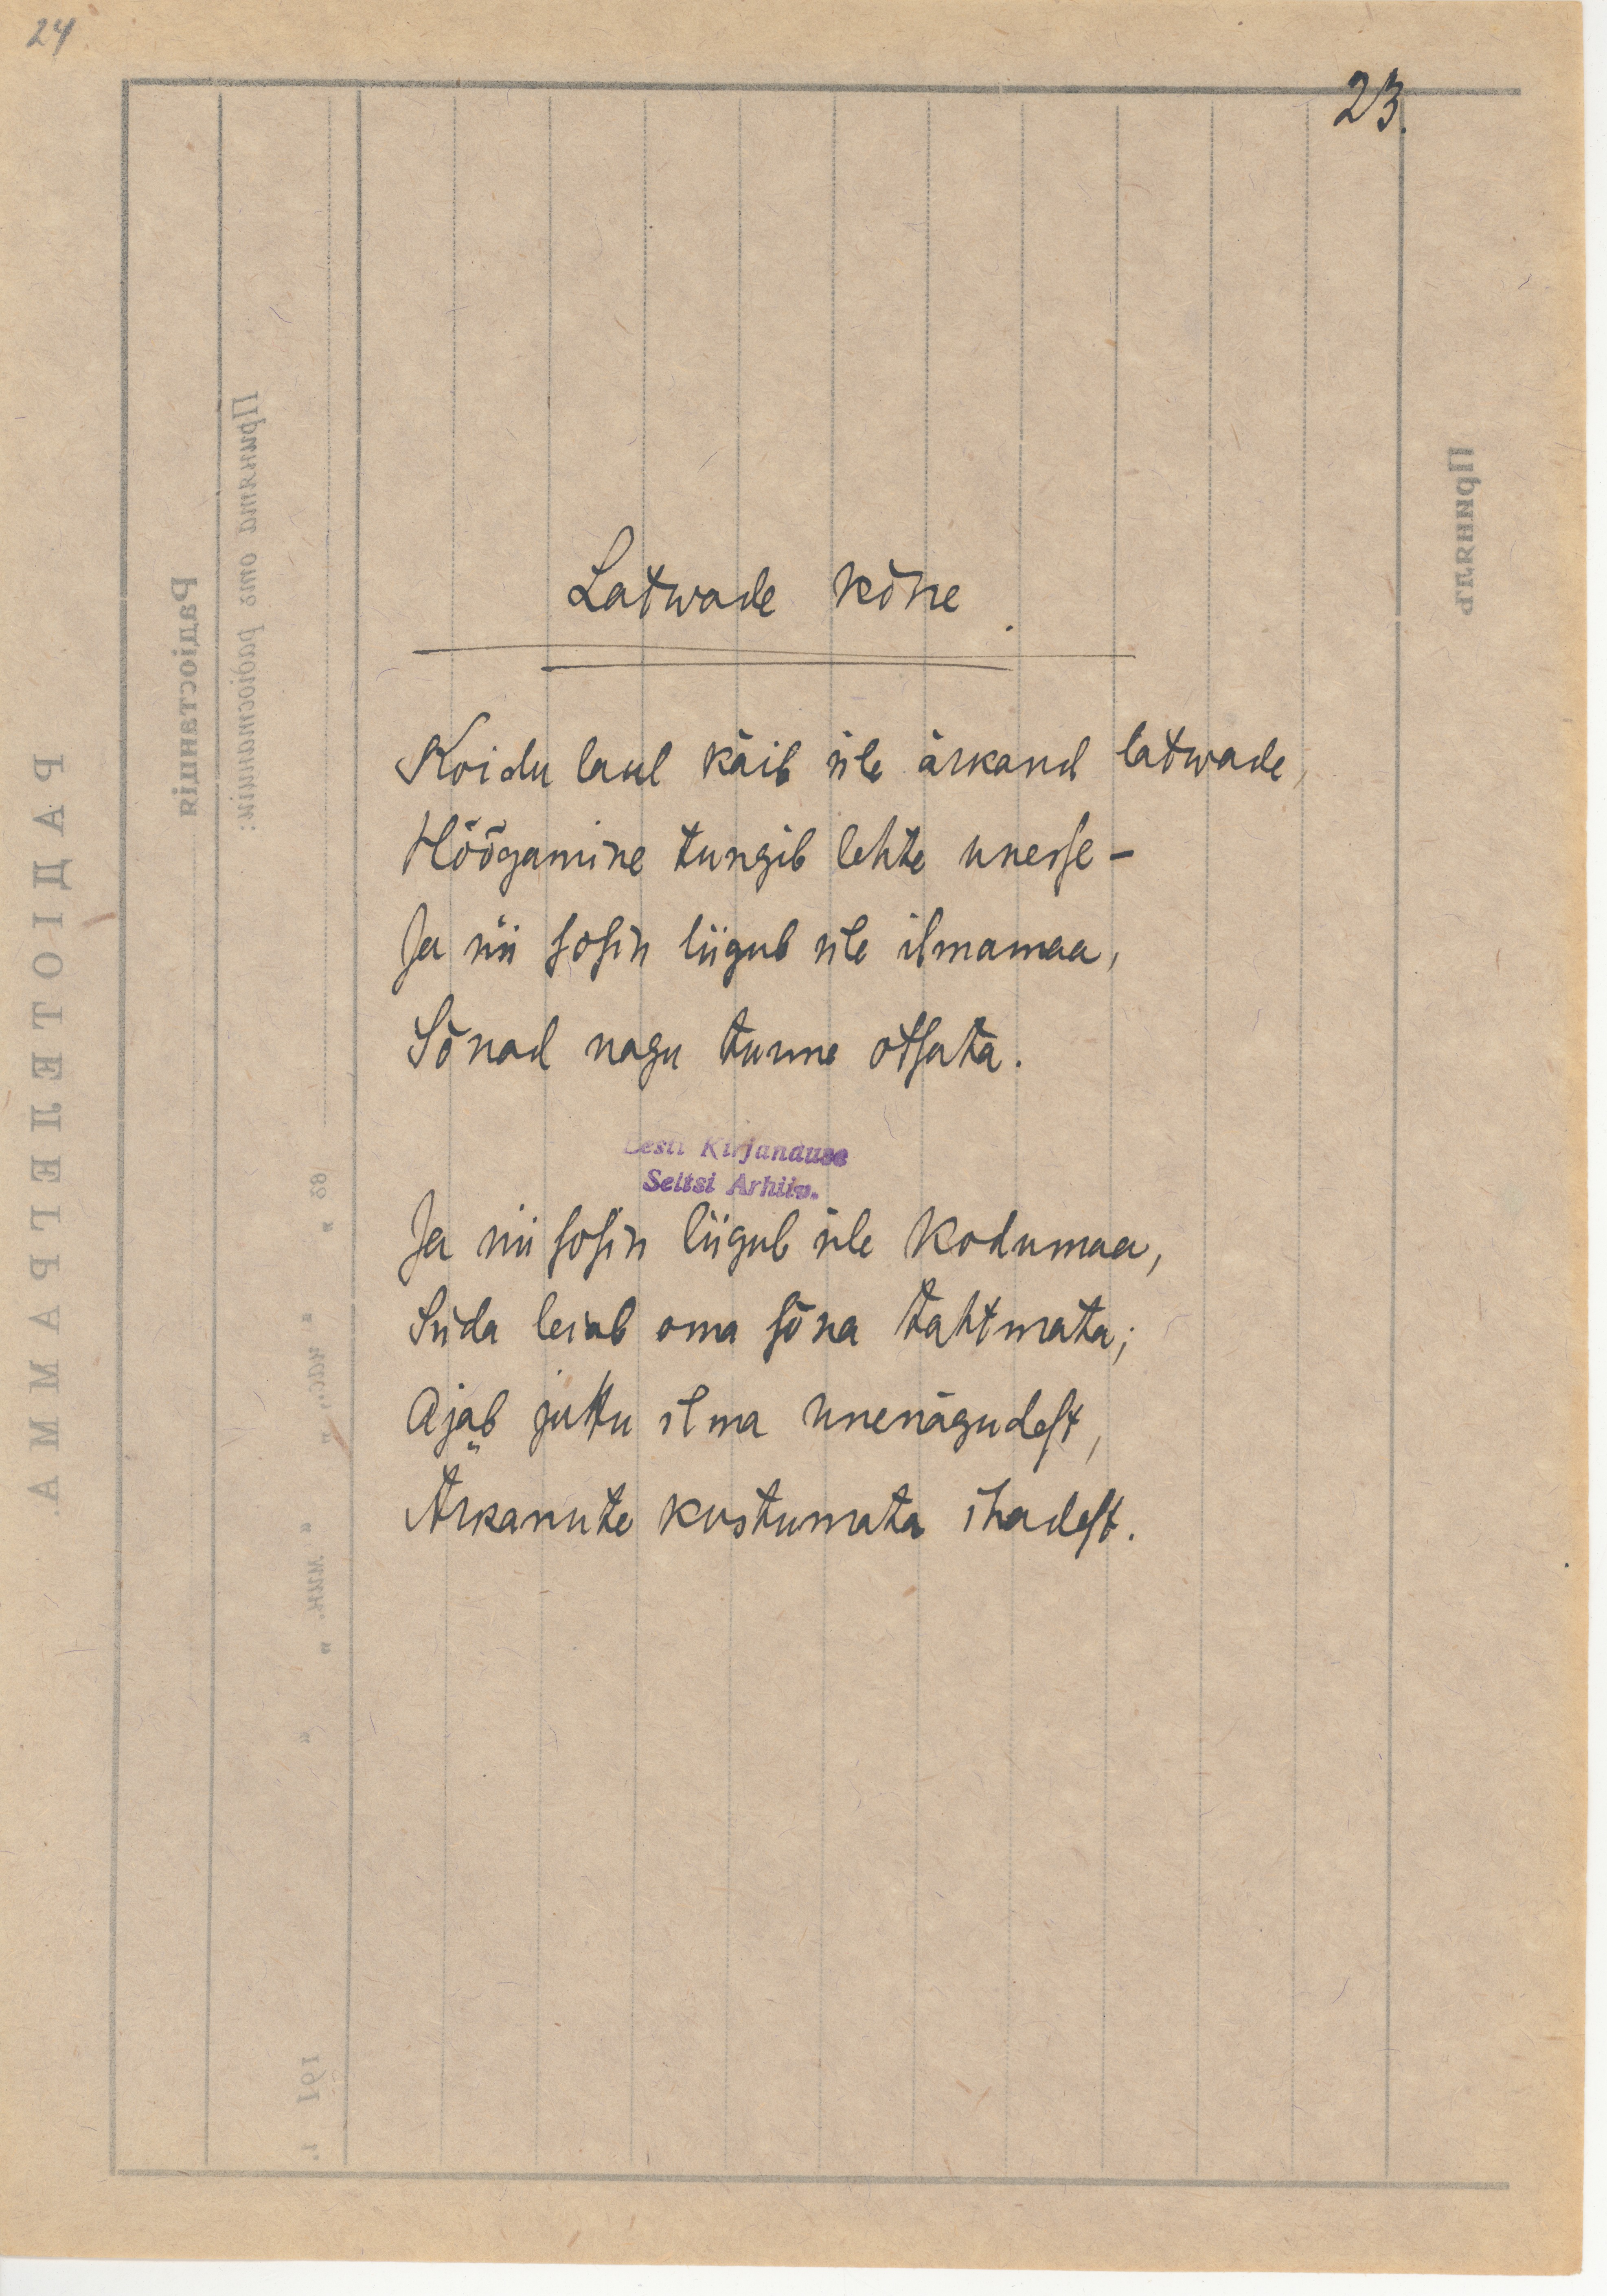 24
23.
Latwade kõne.
Koidu laul käib üle ärkand latwade,
Hõõgamine tungib lehte unesse –
Ja nii sosin liigub üle ilmamaa,
Sõnad nagu tunne otsata.
Eesti Kirjanduse
Seltsi Arhiiv.
Ja nii sosin liigub üle kodumaa,
Süda leiab oma sõna tahtmata;
Ajab juttu ilma unenägudest,
Ärkanute kustumata ihadest.
РАДІОТЕЛЕГРАММА.
Радіостанція
Принята отъ радіостанціи:
Принялъ
въ " " час., " " мин. " "
191 г.